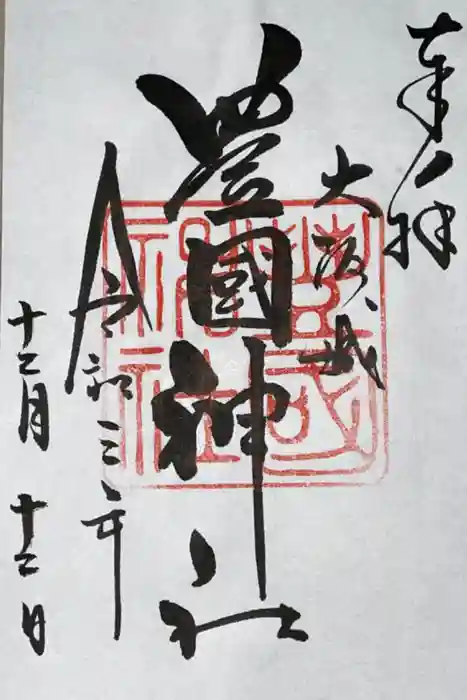 奉拝
大阪城
豊國神社
令和三年
十二月
十二日